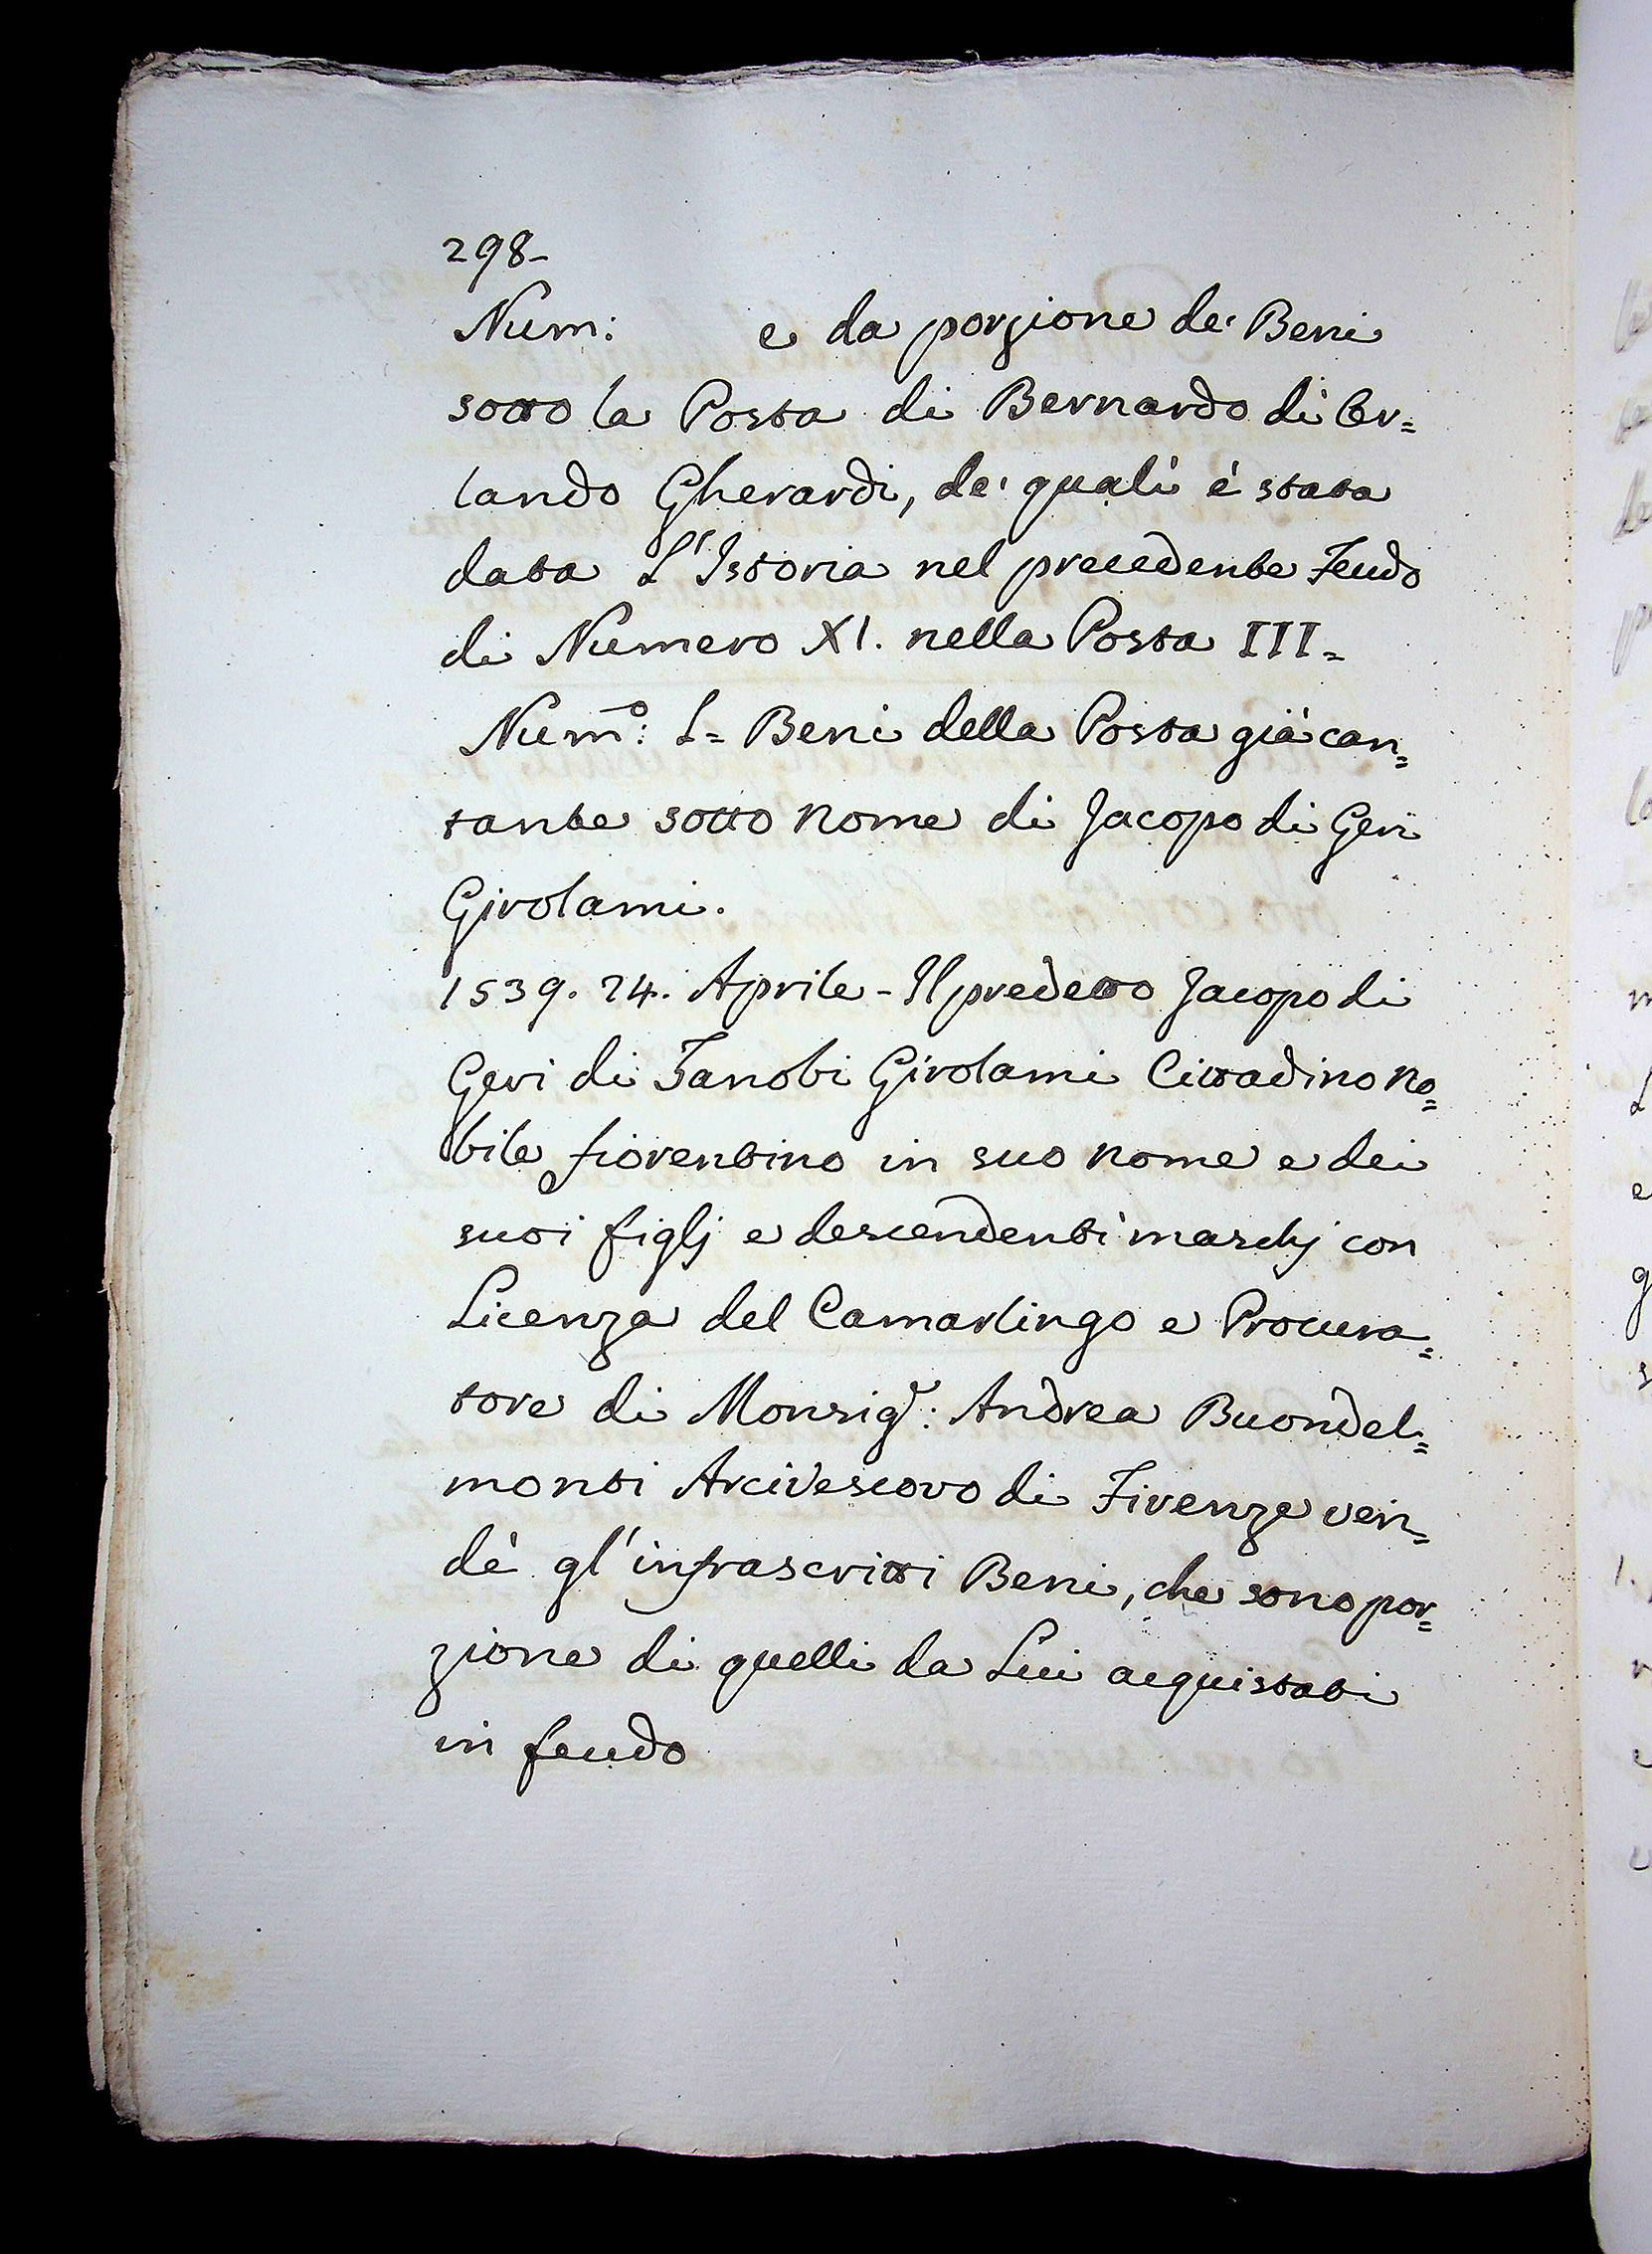 298-
Num: e da porzione de' Beni
sotto la Posta di Bernardo di Or=
lando Gherardi, de' quali è stata
data L'Istoria nel precedente Feudo
di Numero XI. nella Posta III=
Num.º: L= Beni della Posta già can=
tante sotto nome di Jacopo di Geri
Girolami.
1539. 24. Aprile - Il predetto Jacopo di
Geri di Zanobi Girolami Cittadino no=
bile fiorentino in suo nome e dei
suoi figlj e descendenti maschj con
Licenza del Camarlingo e Procura=
tore di Monsig.r: Andrea Buondel=
monti Arcivescovo di Firenze ven=
dè gl'infrascritti Beni, che sono por=
zione di quelli da Lui acquistati
in feudo